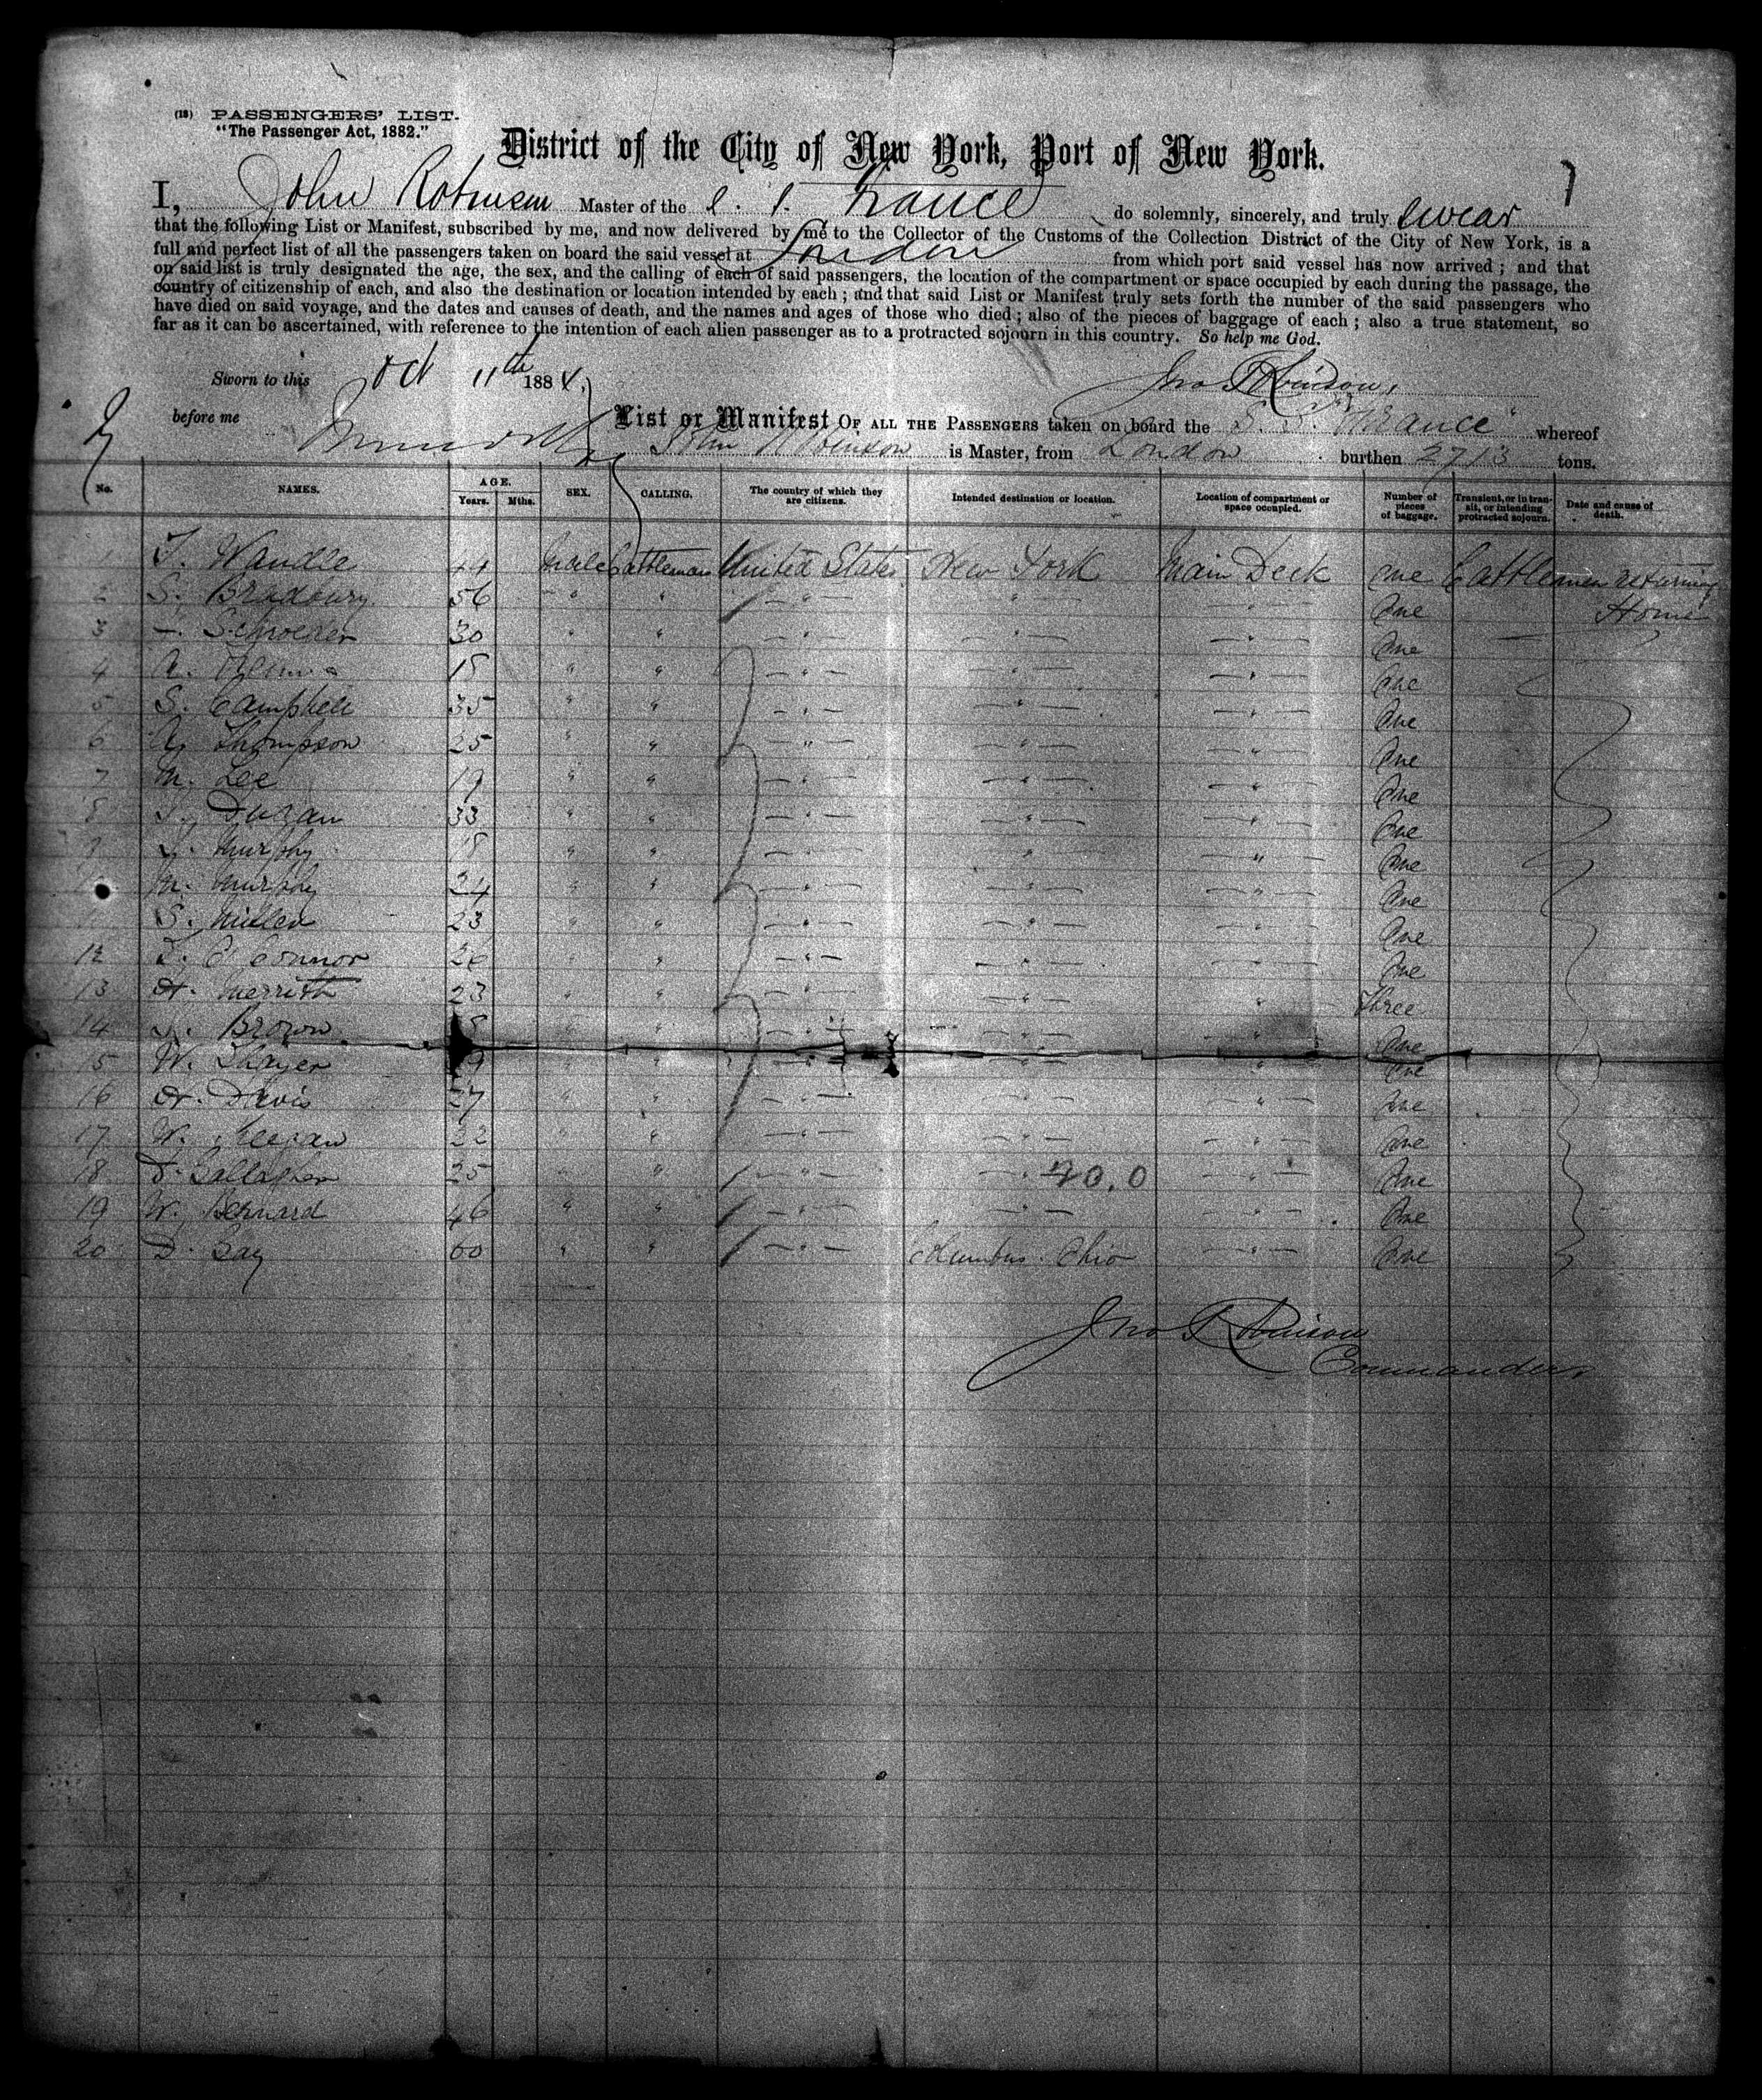 (18) PASSENGERS' LIST.
"The Passenger Act, 1882."
District of the City of New York, Port of New York.
I, John Robinson Master of the S. S. France do solemnly, sincerely, and truly swear
that the following List or Manifest, subscribed by me, and now delivered by me to the Collector of the Customs of the Collection District of the City of New York, is a
full and perfect list of all the passengers taken on board the said vessel at London from which port said vessel has now arrived ; and that
on said list is truly designated the age, the sex, and the calling of each of said passengers, the location of the compartment or space occupied by each during the passage, the
country of citizenship of each, and also the destination or location intended by each ; and that said List or Manifest truly sets forth the number of the said passengers who
have died on said voyage, and the dates and causes of death, and the names and ages of those who died ; also of the pieces of baggage of each ; also a true statement, so
far as it can be ascertained, with reference to the intention of each alien passenger as to a protracted sojourn in this country. So help me God.
Sworn to this Oct 11th 1884, Jno Robinson,
before me
List or Manifest OF ALL THE PASSENGERS taken on board the S. S. "France" whereof
John Robinson is Master, from London burthen 2713 tons.
No. NAMES. AGE. Years. Mths. SEX. CALLING. The country of which they are citizens. Intended destination or location. Location of compartment or space occupied. Number of pieces of baggage. Transient, or in transit, or intending protracted sojourn. Date and cause of death.
1 T. Wandle 44 Male Cattleman United States New York Main Deck One Cattlemen returning
2 S. Bradbury 56 " " " " " One Home
3 Schroeder 30 " " " " " One
4 A. 18 " " " " " One
5 S. Campbell 35 " " " " " One
6 A. Thompson 25 " " " " " One
7 M. Lee 19 " " " " " One
8 Dugan 33 " " " " " One
9 J. Murphy 18 " " " " " One
M. Murphy 24 " " " " " One
S. Miller 23 " " " " " One
12 O'Connor 26 " " " " " One
13 H. Merrith 23 " " " " " Three
14 J. Brown " " " " " One
15 W. Thayer " " " " " One
16 H. Davis 27 " " " " " One
17 W. Keegan 22 " " " " " One
18 D. Gallagher 25 " " " " 20.0 " One
19 W. Bernard 46 " " " " " One
20 D. Gay 60 " " " Columbus Ohio " One
Jno Robinson
Commander